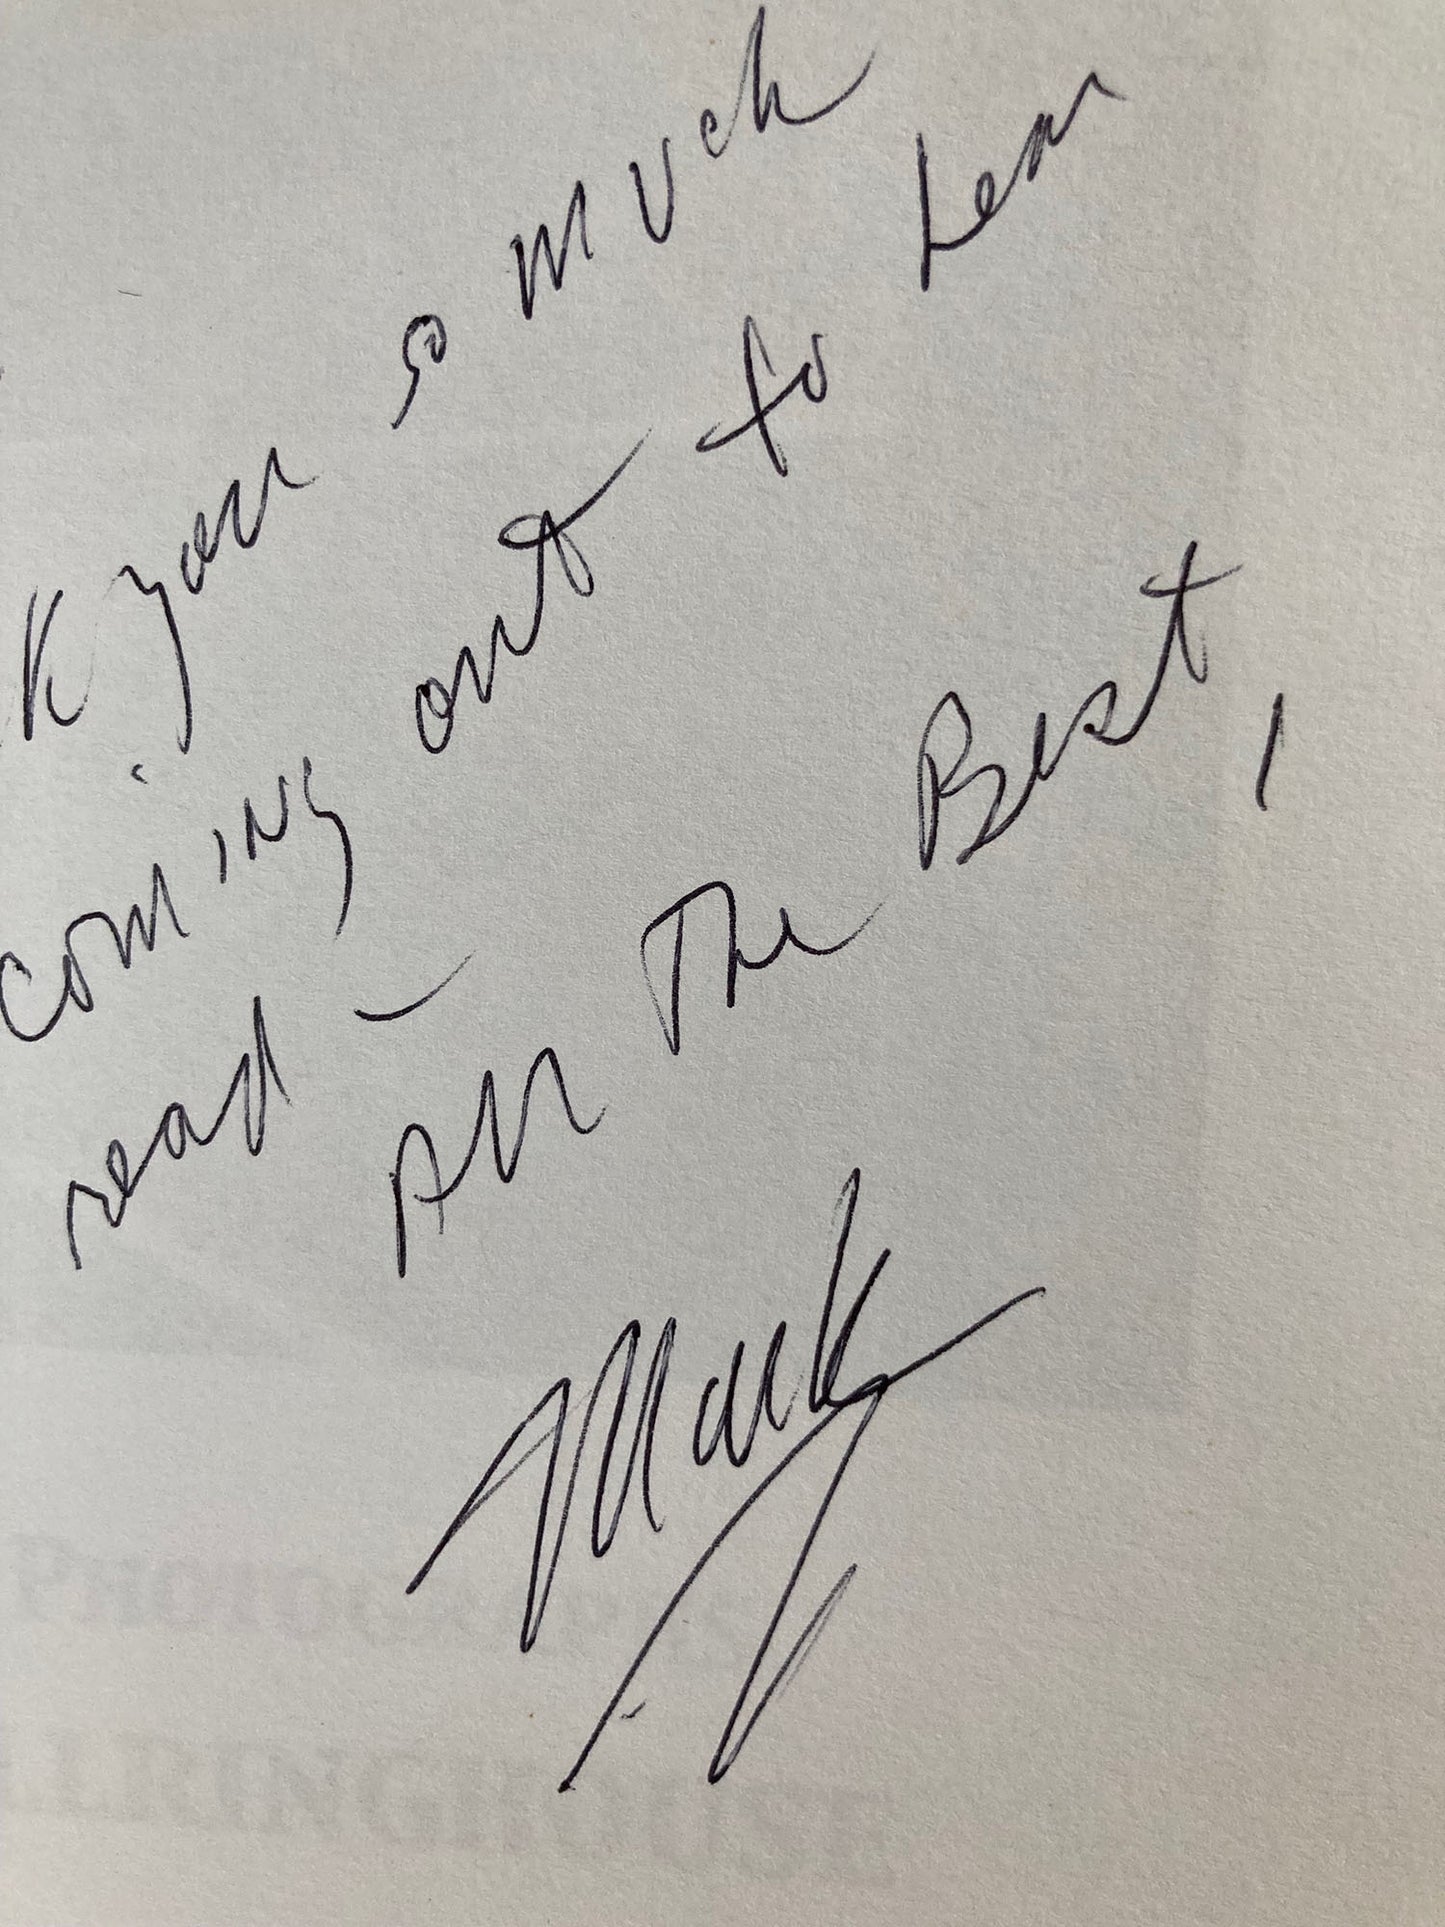 k you so much
coming out to hear
read –
All The Best,
Mark